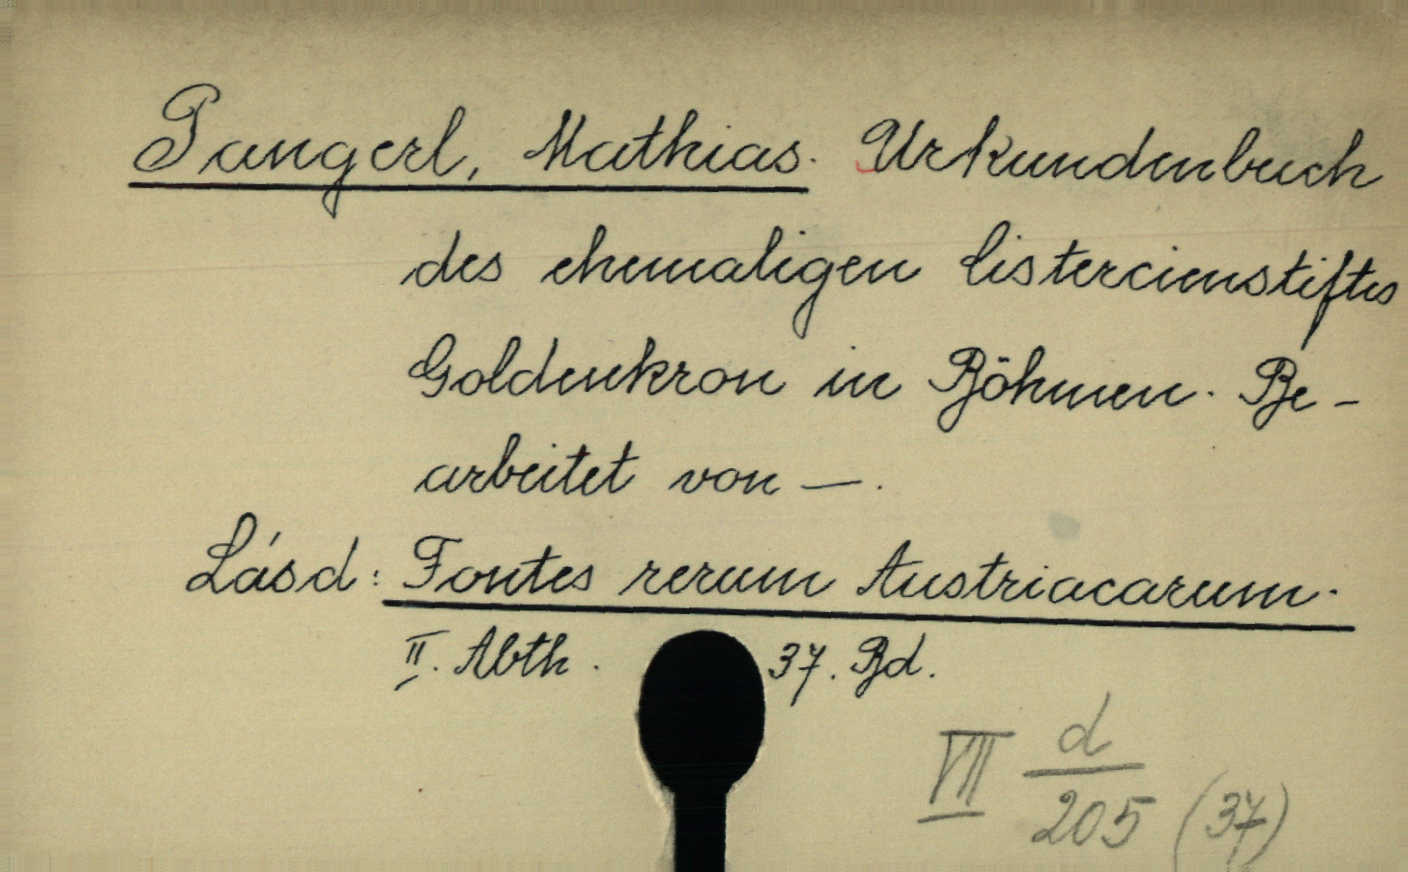 Pangerl, Mathias. Urkundenbuch
des ehemaligen Cistercienstiftes
Goldenkron in Böhmen. Be-
arbeitet von —.
Lásd: Fontes rerum Austriacarum.
II. Abth. 37. Bd.
VII d/205 (37)